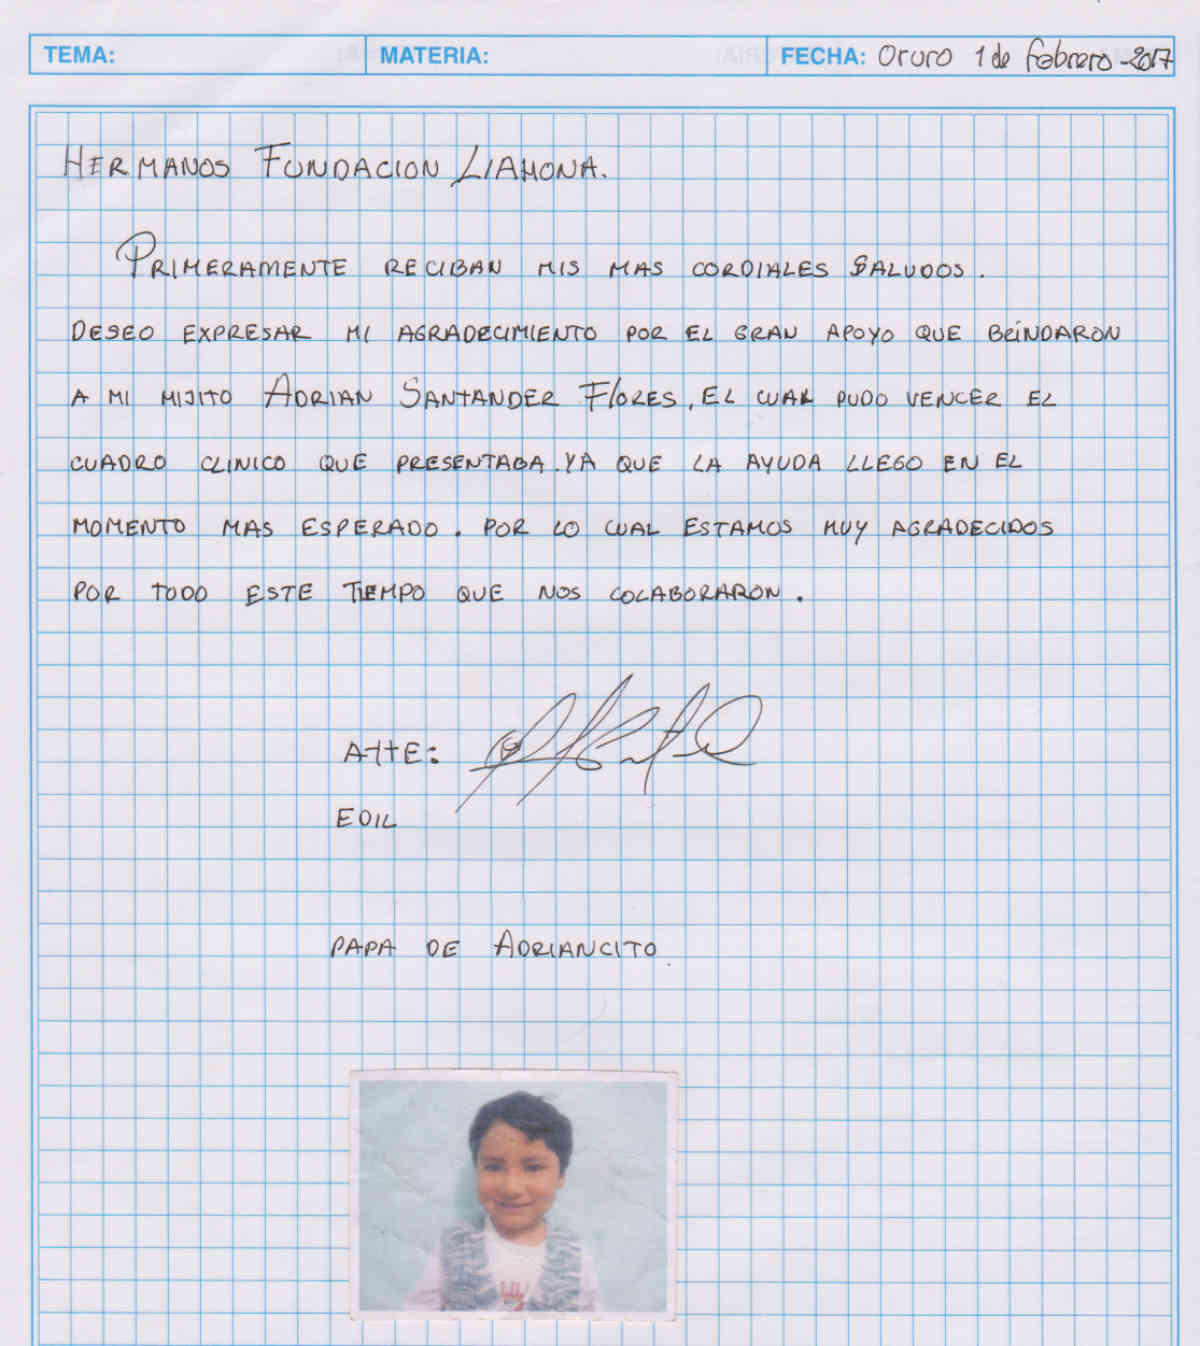 TEMA: MATERIA: FECHA: Oruro 1 de febrero -2017
HERMANOS FUNDACION LIAHONA.
PRIMERAMENTE RECIBAN MIS MAS CORDIALES SALUDOS.
DESEO EXPRESAR MI AGRADECIMIENTO POR EL GRAN APOYO QUE BRINDARON
A MI HIJITO ADRIAN SANTANDER FLORES, EL CUAL PUDO VENCER EL
CUADRO CLINICO QUE PRESENTABA. YA QUE LA AYUDA LLEGO EN EL
MOMENTO MAS ESPERADO. POR LO CUAL ESTAMOS MUY AGRADECIDOS
POR TODO ESTE TIEMPO QUE NOS COLABORARON.
ATTE:
EDIL
PAPA DE ADRIANCITO.